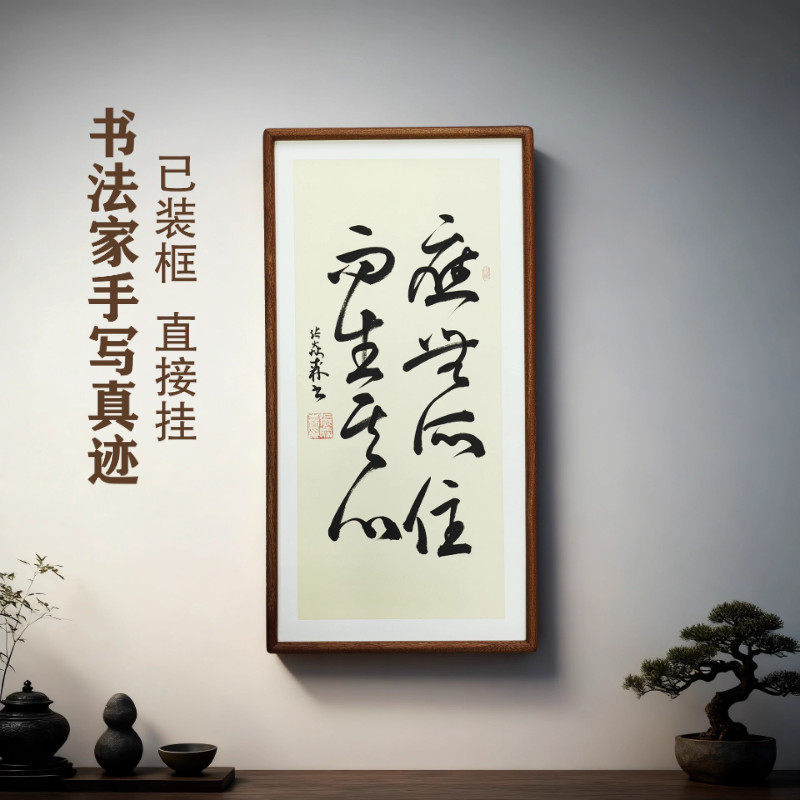 书法家手写真迹
已装框 直接挂
應無所住
而生其心